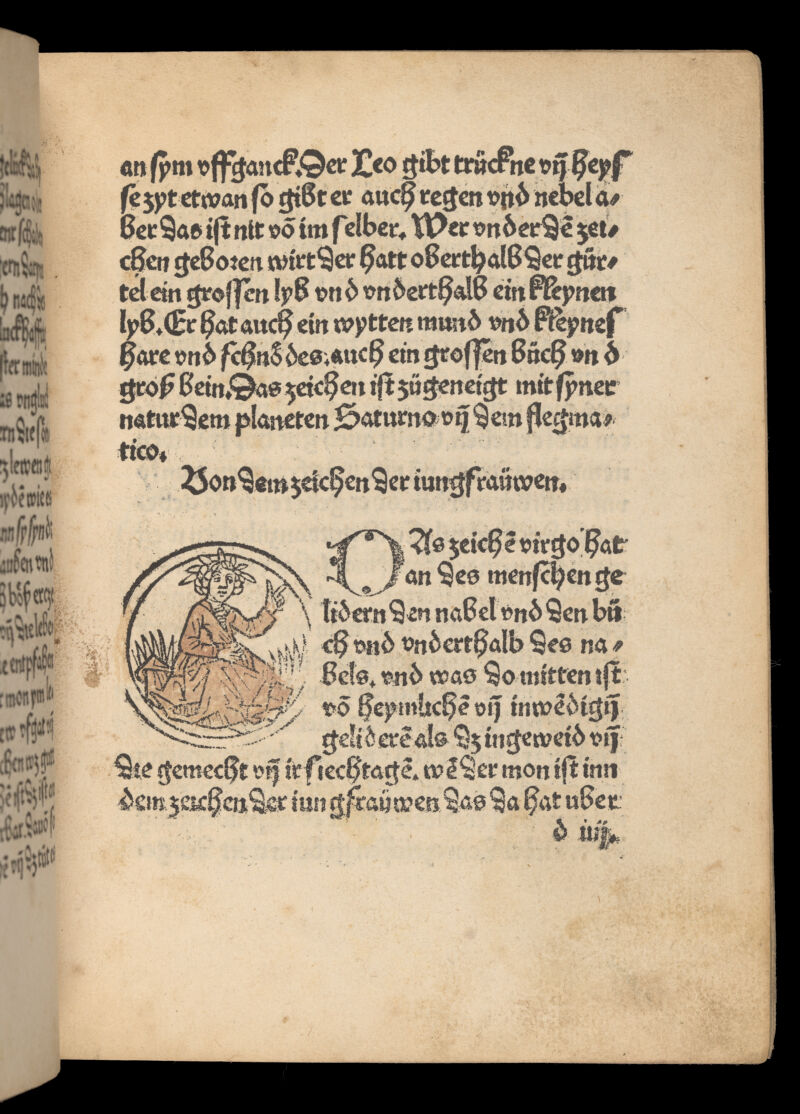 an sym vffganck. Der Leo gibt trückne vñ heys
se zyt etwan so gibt er auch regen vnd nebel a⸗
ber das ist nit võ im selber. Wer vnder dẽ zei⸗
chen geboren wirt der hatt oberthalb der gür⸗
tel ein grossen lyb vnd vnderthalb ein kleynen
lyb. Er hat auch ein wytten mund vnd kleynes
hare vnd schnödes. auch ein grossen büch vn d
groß bein. Das zeichen ist zügeneigt mit syner
natur dem planeten Saturno vñ dem flegma⸗
tico.
Von dem zeichen der iungfraüwen.
DAs zeichẽ virgo hat
an des menschen ge
lidern den nabel vnd den bü
ch vnd vnderthalb des na⸗
bels. vnd was do mitten ist
võ heymlichẽ vñ inwẽdigñ
geliderẽ als dz ingeweid vñ
die gemecht vñ ir siechtagẽ. wẽ der mon ist inn
dem zeichen der iungfraüwen das da hat uber
d iiij.